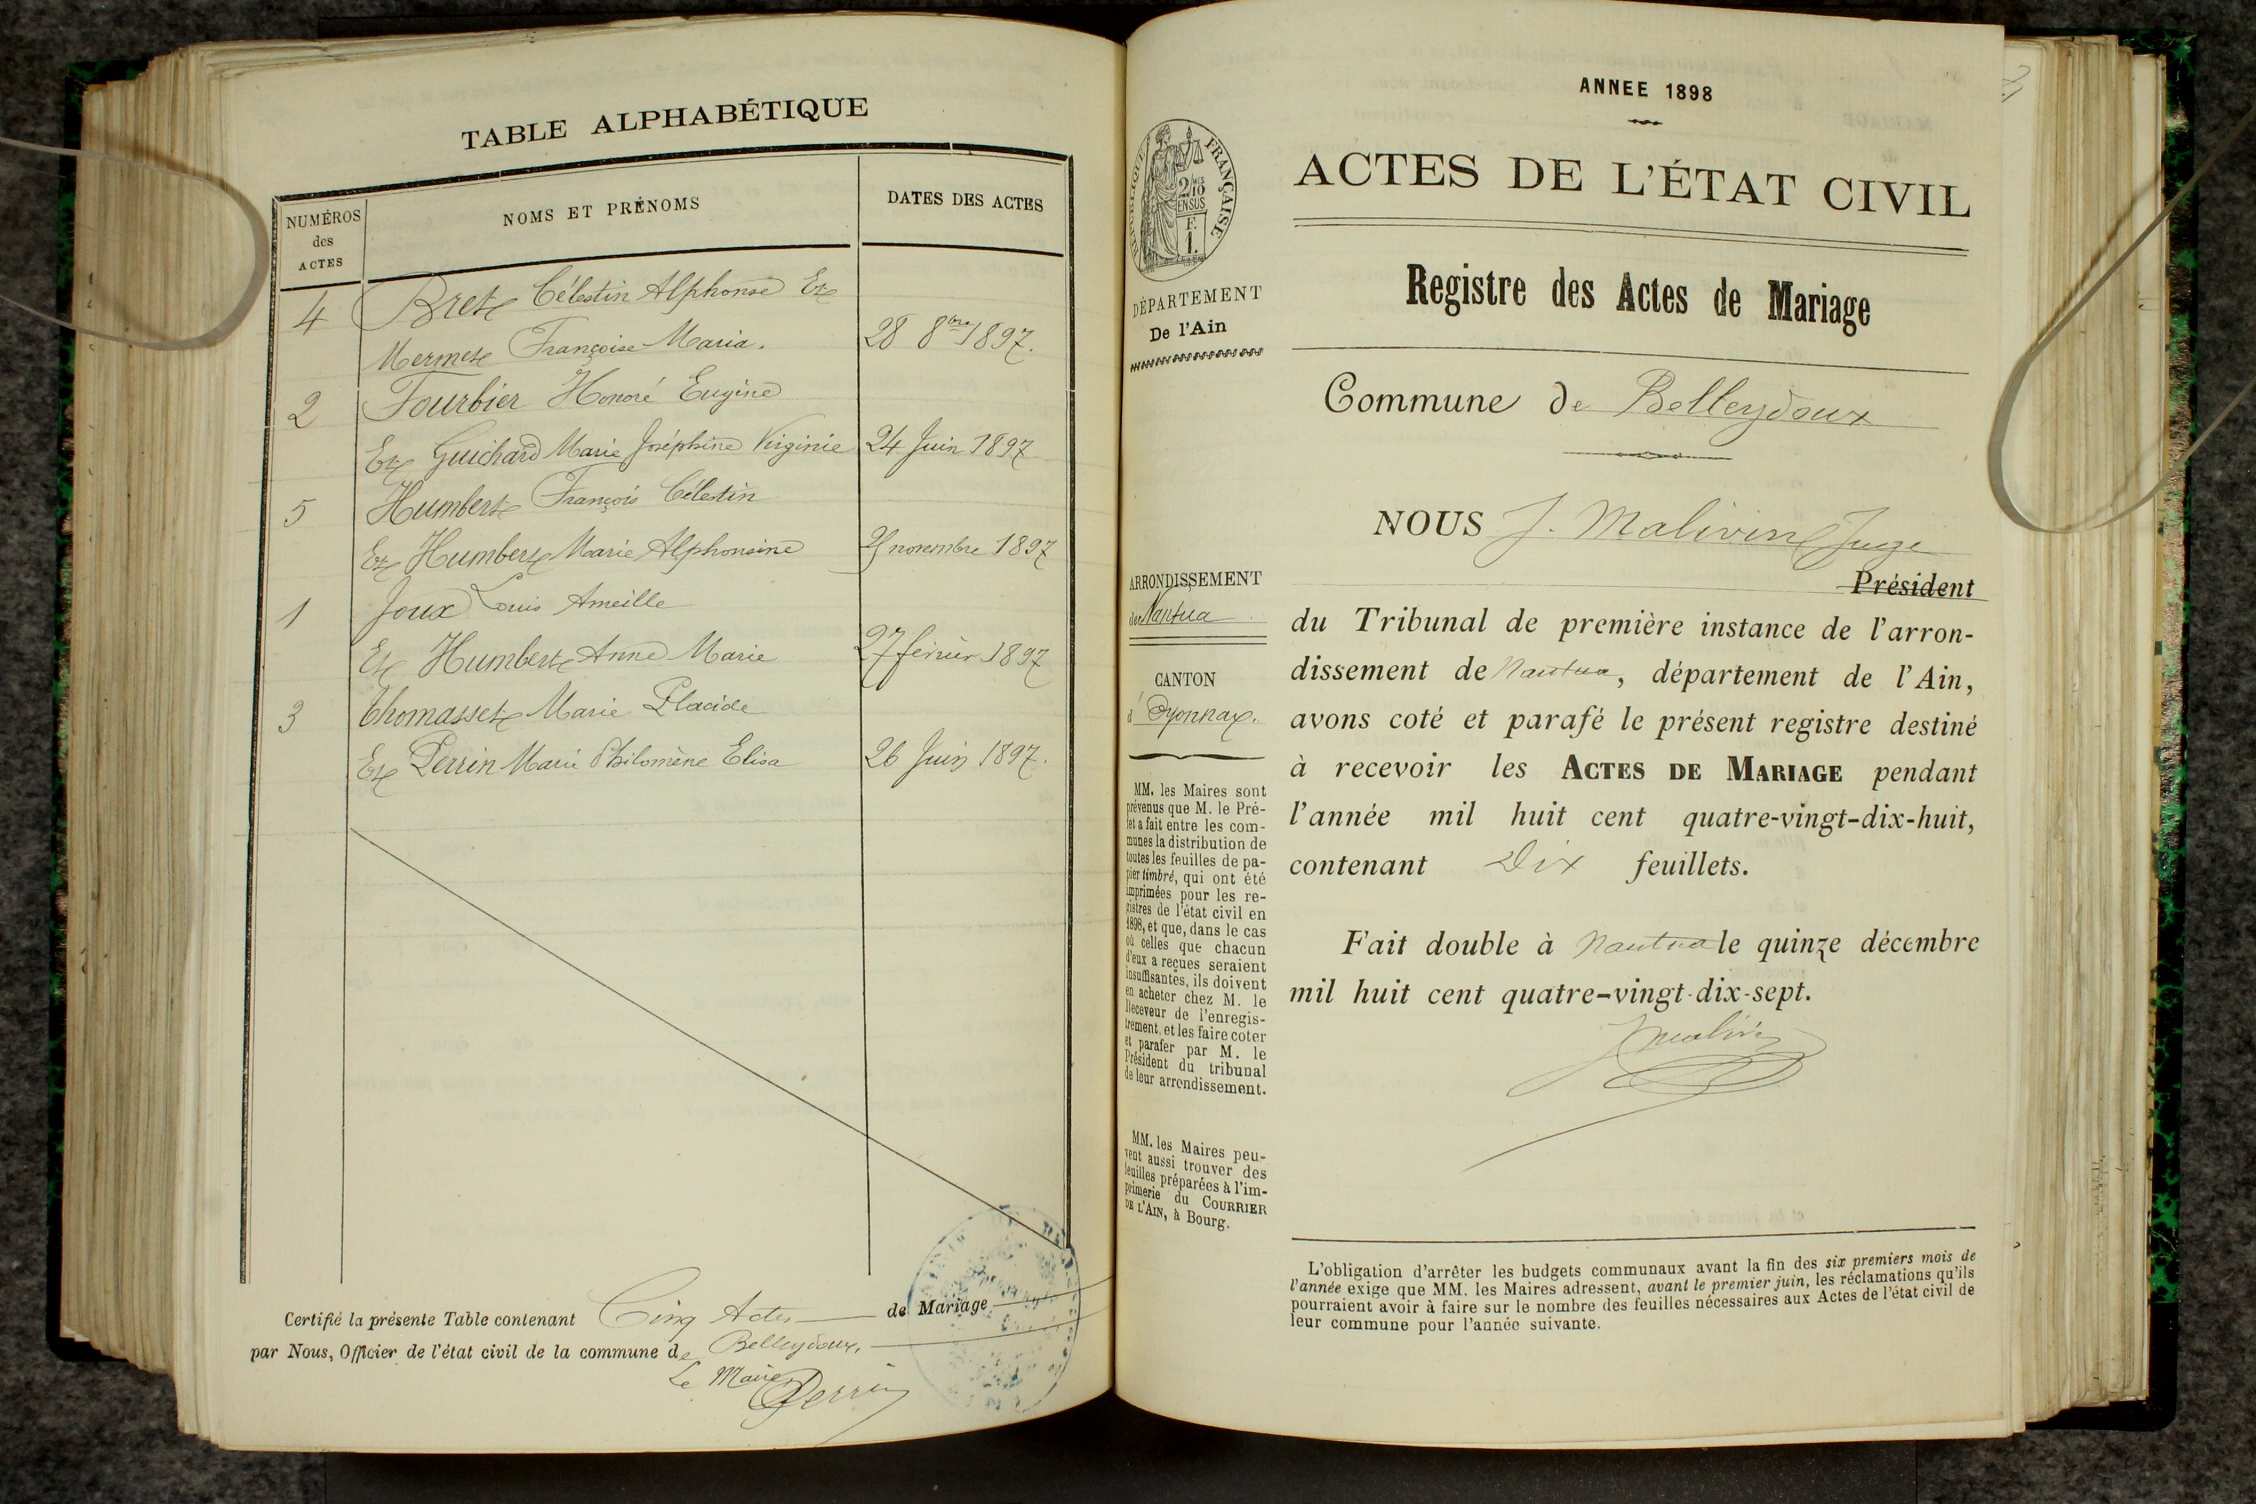 TABLE ALPHABÉTIQUE
NUMÉROS
des
ACTES
NOMS ET PRÉNOMS
DATES DES ACTES
4 Bret Célestin Alphonse Et
Mermet Françoise Maria. 28 8bre 1897.
2 Fourbier Honoré Eugène
Et Guichard Marie Joséphine Virginie 24 Juin 1897
5 Humbert François Célestin
Et Humbert Marie Alphonsine novembre 1897
1 Joux Louis Ameille
Et Humbert Anne Marie 27 février 1897
3 Thomasset Marie Placide
Et Perrin Marie Philomène Elisa 26 Juin 1897.
Certifié la présente Table contenant Cinq Actes de Mariage
par Nous, Officier de l'état civil de la commune de Belleydoux.
Le Maire
Perrin
ANNEE 1898
RÉPUBLIQUE FRANÇAISE
2/10
EN SUS
F.
1.
DÉPARTEMENT
De l'Ain
ARRONDISSEMENT
de Nantua
CANTON
d'Oyonnax.
MM. les Maires sont
prévenus que M. le Pré-
fet a fait entre les com-
munes la distribution de
toutes les feuilles de pa-
pier timbré, qui ont été
imprimées pour les re-
gistres de l'état civil en
1898, et que, dans le cas
où celles que chacun
d'eux a reçues seraient
insuffisantes, ils doivent
en acheter chez M. le
Receveur de l'enregis-
trement, et les faire coter
et parafer par M. le
Président du tribunal
de leur arrondissement.
MM. les Maires peu-
vent aussi trouver des
feuilles préparées à l'im-
primerie du COURRIER
DE L'AIN, à Bourg.
ACTES DE L'ÉTAT CIVIL
Registre des Actes de Mariage
Commune de Belleydoux
NOUS J. Malivin Juge
Président
du Tribunal de première instance de l'arron-
dissement de Nantua, département de l'Ain,
avons coté et parafé le présent registre destiné
à recevoir les ACTES DE MARIAGE pendant
l'année mil huit cent quatre-vingt-dix-huit,
contenant Dix feuillets.
Fait double à Nantua le quinze décembre
mil huit cent quatre-vingt-dix-sept.
J Malivin
L'obligation d'arrêter les budgets communaux avant la fin des six premiers mois de
l'année exige que MM. les Maires adressent, avant le premier juin, les réclamations qu'ils
pourraient avoir à faire sur le nombre des feuilles nécessaires aux Actes de l'état civil de
leur commune pour l'année suivante.